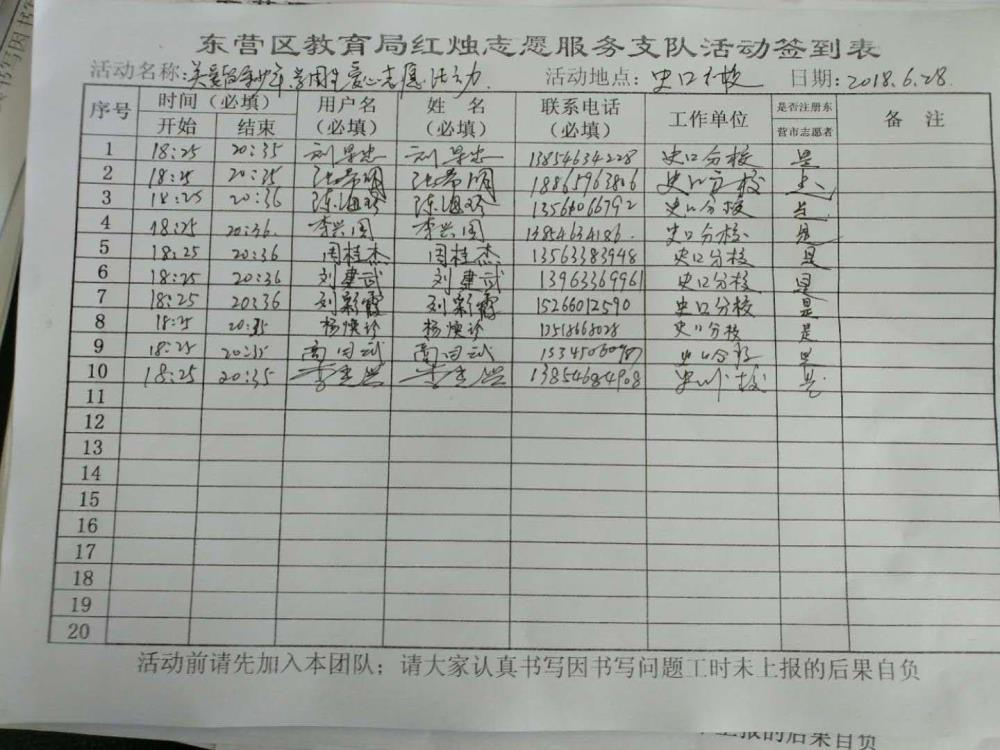 东营区教育局红烛志愿服务支队活动签到表
活动名称: 活动地点: 史口分校 日期: 2018.6.28
序号 时间（必填） 用户名（必填） 姓名（必填） 联系电话（必填） 工作单位 是否注册东营市志愿者 备注
开始 结束
1 18:25 20:35 刘景忠 刘景忠 13854634228 史口分校 是
2 18:25 20:35 史口分校 是
3 18:25 20:36 13564066792 史口分校 是
4 18:25 20:36 李兴国 李兴国 13854634186 史口分校 是
5 18:25 20:36 周桂杰 周桂杰 13563383948 史口分校 是
6 18:25 20:36 刘建武 刘建武 13963369961 史口分校 是
7 18:25 20:36 刘新霞 刘新霞 15266012590 史口分校 是
8 18:25 20:35 杨焕珍 杨焕珍 史口分校 是
9 18:25 20:35 史口分校 是
10 18:25 20:35 13854684908 史口分校 是
11
12
13
14
15
16
17
18
19
20
活动前请先加入本团队；请大家认真书写因书写问题工时未上报的后果自负
上报的后果自负